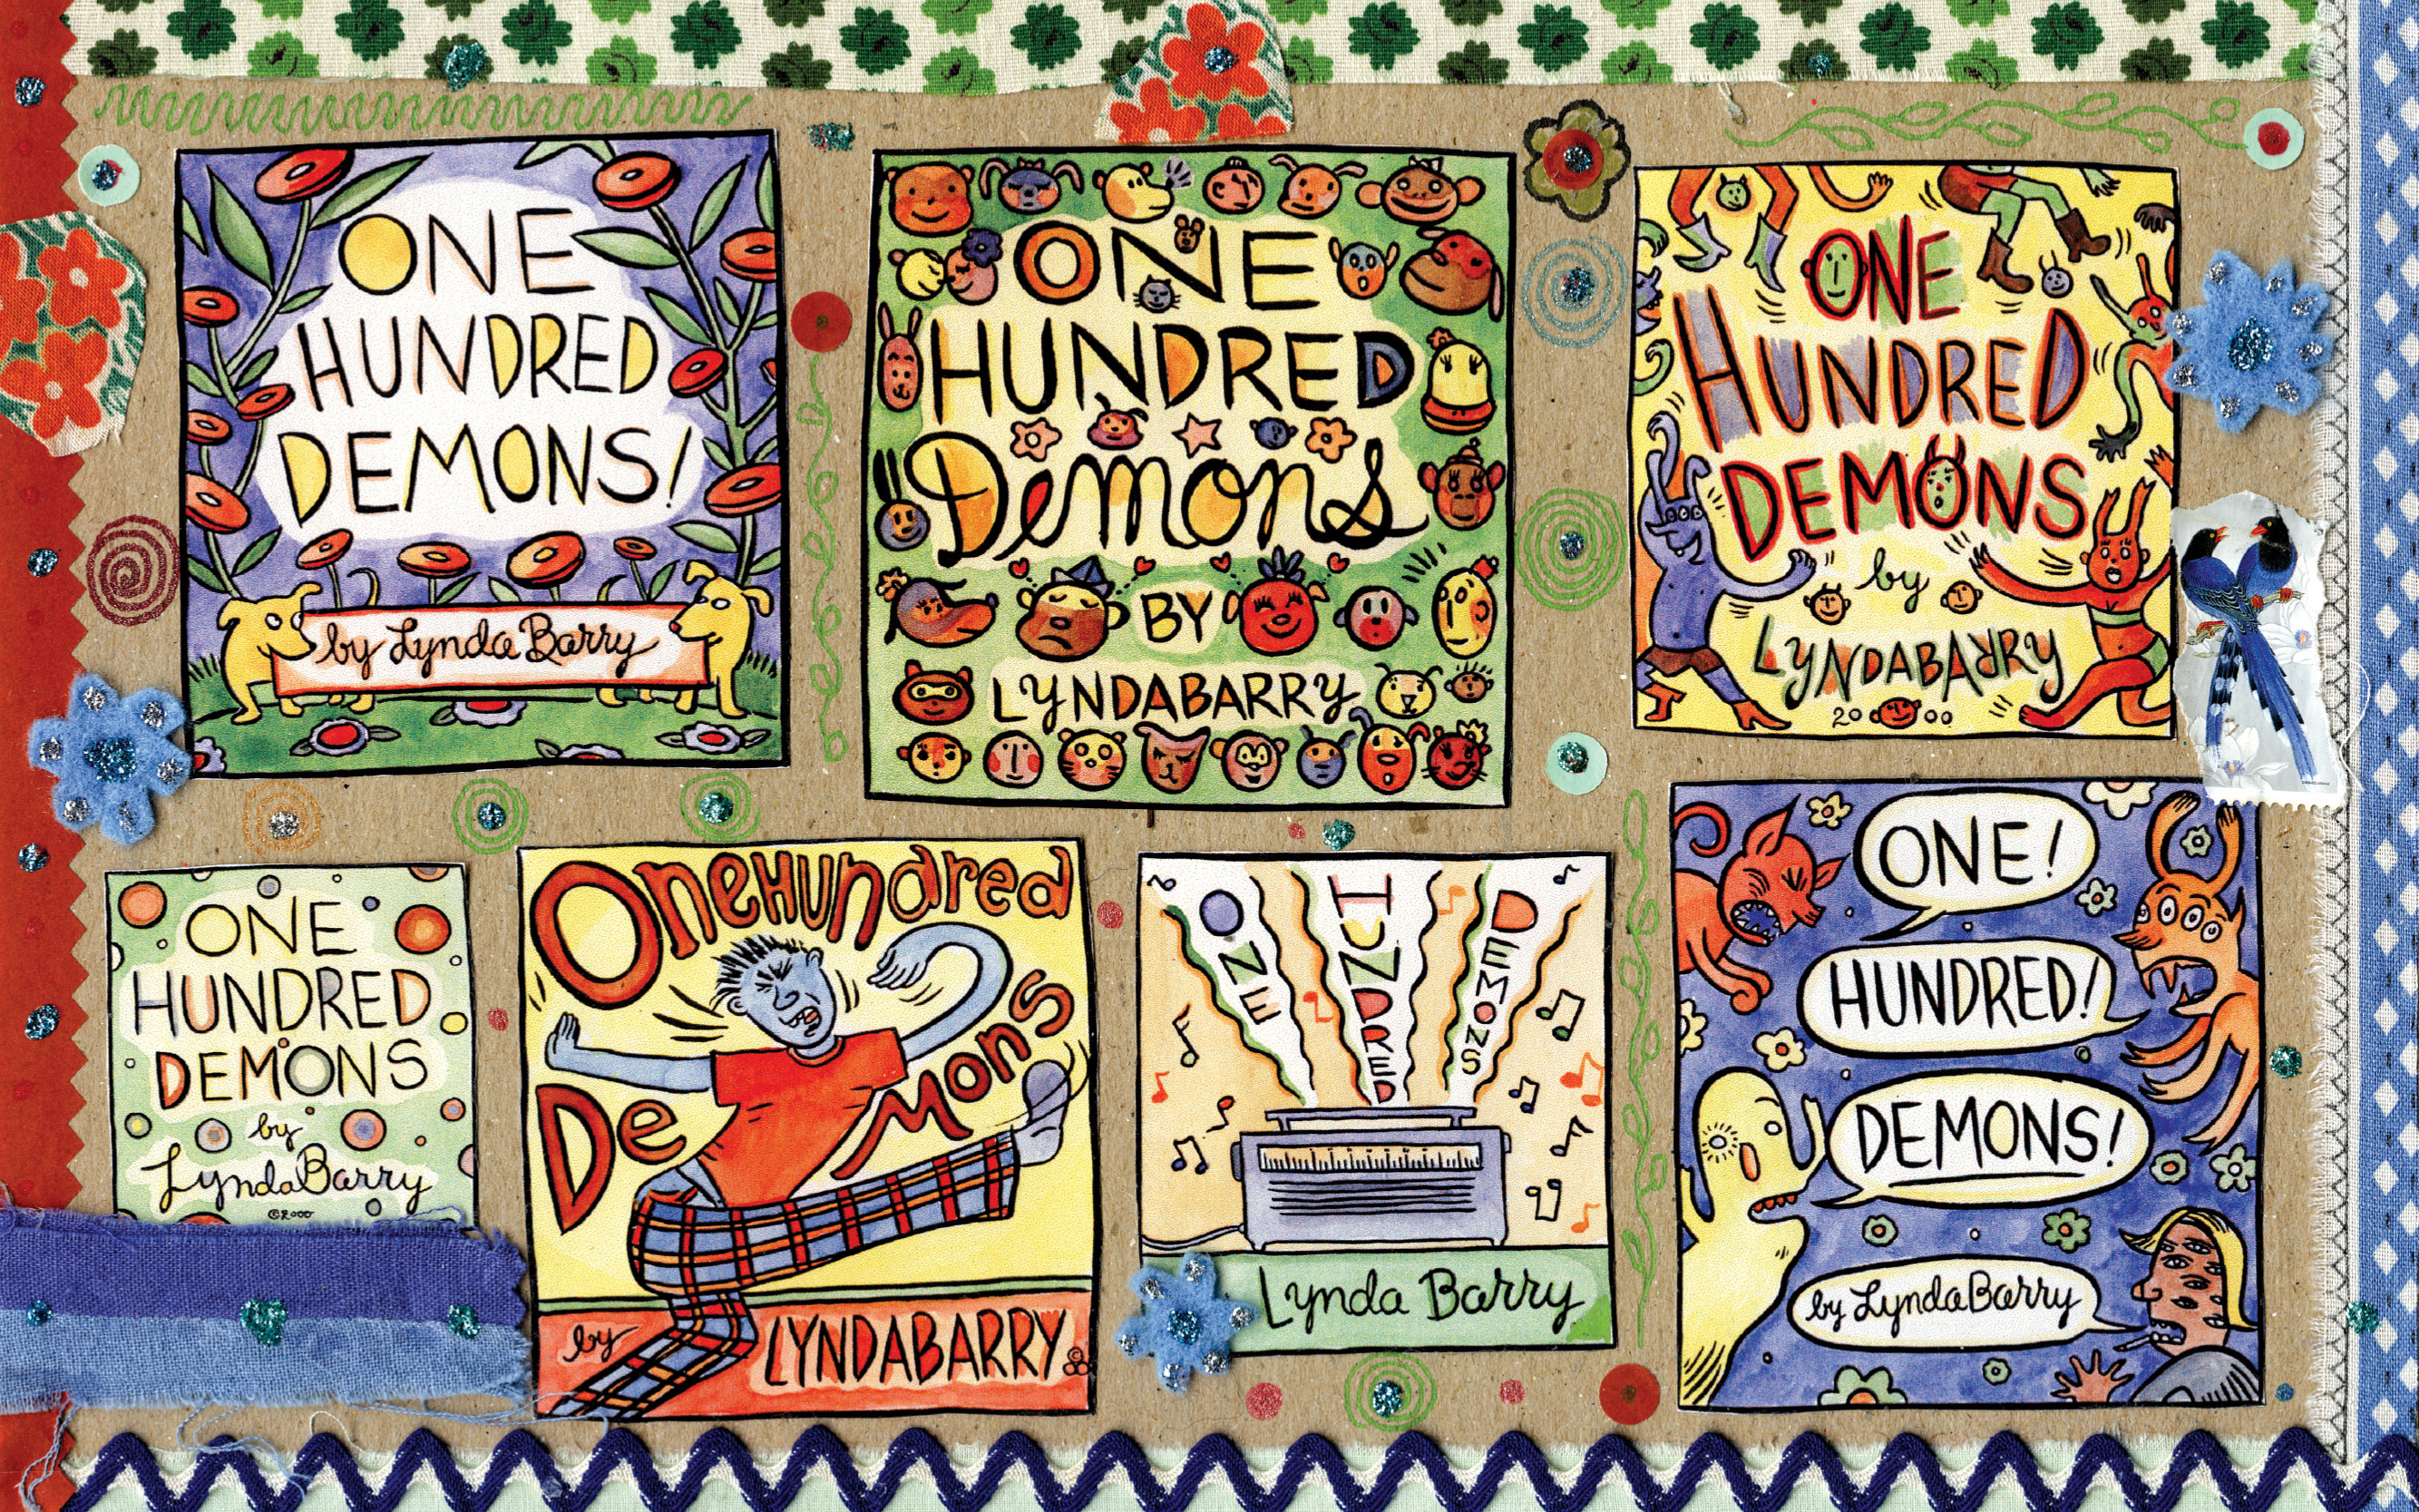 ONE
HUNDRED
DEMONS!
by Lynda Barry
ONE
HUNDRED
Demons
BY
LYNDABARRY
ONE
HUNDRED
DEMONS
by
LYNDABARRY
2000
ONE
HUNDRED
DEMONS
by
Lynda Barry
©2000
OneHUNdred
DeMons
by LYNDABARRY ©
ONE HUNDRED DEMONS
Lynda Barry
ONE!
HUNDRED!
DEMONS!
by Lynda Barry